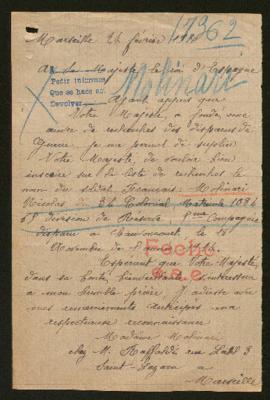 17362
Marseille 24 février
A Sa Majesté le Roi d'Espagne
Pedir informes
Que se hace sab
Devolver
Molinari
Ayant appris que
Votre Majesté, a fondé une
œuvre de recherches des disparus de
Guerre je me permet de supplier
Votre Majesté, de vouloir bien
inscrire sur la liste de recherches le
nom du soldat Français: Molinari
Nicolas du 34 Colonial Matricule
68 Division de Réserve 8me Compagnie
disparu à le 18
Novembre de l'année
Fecho
Espérant que Votre Majesté,
dans sa bonté bienveillante
à mon humble prière J'adresse avec
mes remerciements anticipés ma
respectueuse reconnaissance
Madame Molinari
chez M. Raffaldi rue
Saint-Lazare à
Marseille